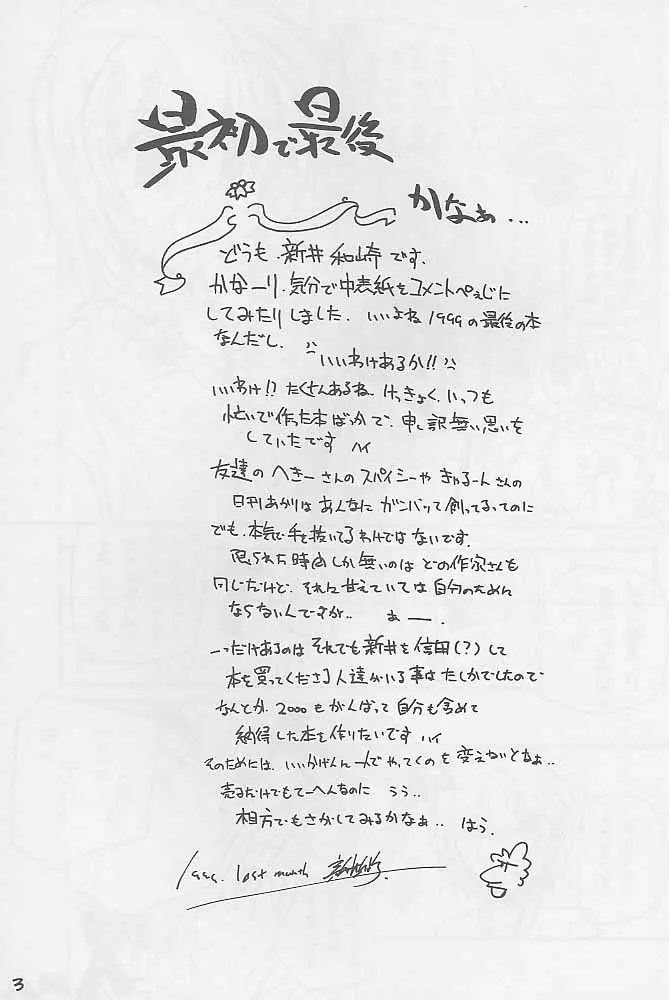 最初で最後
かなぁ...
どうも.新井和崎です.
かなーり.気分で中表紙をコメントぺぇじに
してみたりしました. いいよね 1999の最後の本
なんだし.
いいわけあるか!!
いいわけ!? たくさんあるね. けっきょく.いっつも
忙いで作った本ばっかで、申し訳無い思いを
していたです ハイ
友達の へきーさんの スパイシーや きゃるーん さんの
日刊あがりは あんなに ガンバッて創ってるってのに
でも.本気で手を抜いてるわけではないです.
限られた時間しか無いのは どの作家さんも
同じだけど. それに甘えていては自分のために
ならないんですが.. ぁー.
一つだけあるのは それでも新井を信用(?)して
本を買ってくださる人達がいる事はたしかでしたので
なんとか. 2000もがんばって自分も含めて
納得した本を作りたいです ハイ
そのためには. いいかげん 一人でやってくのを変えないとなぁ..
売るだけでもてーへんなのに うぅ..
相方でもさがしてみるかなぁ.. はう.
1999. last month
3